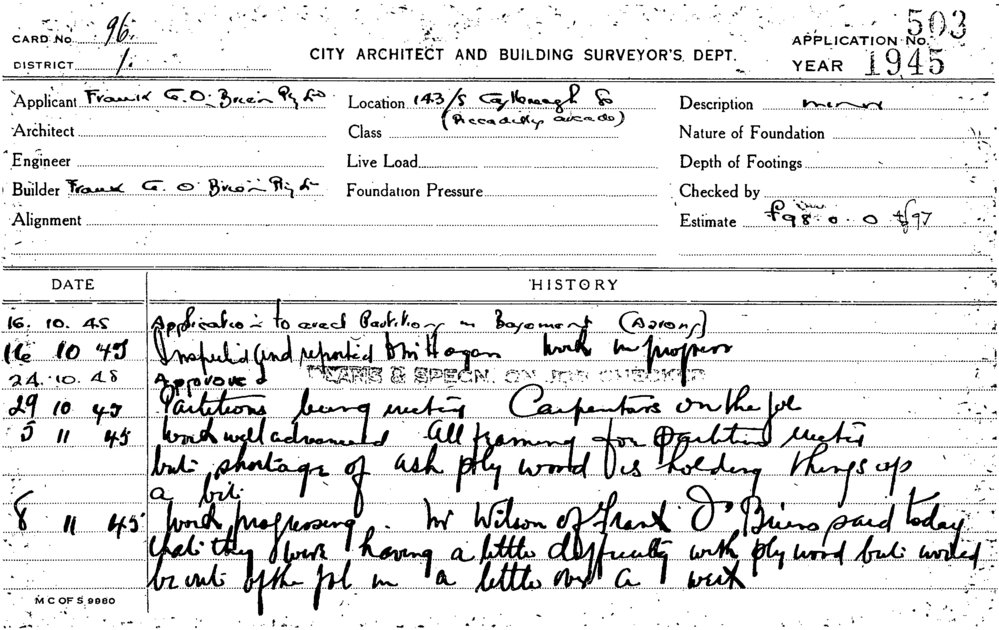 CARD No. 96.
DISTRICT 1.
CITY ARCHITECT AND BUILDING SURVEYOR'S DEPT.
APPLICATION No. 503
YEAR 1945
Applicant Frank G. O'Brien Pty Ld
Location 143/5 Castlereagh St
(Piccadilly arcade)
Description minor
Architect
Class
Nature of Foundation
Engineer
Live Load
Depth of Footings
Builder Frank G. O'Brien Pty Ld
Foundation Pressure
Checked by
Alignment
Estimate £98 . 0 . 0 £97
DATE HISTORY
16. 10. 45 Application to erect Partitions in Basement
16 10 45 Inspected and reported Mr Hogan Work in progress
24. 10. 45 Approved PLANS & SPECN. ON JOB CHECKED
29 10 45 Partitions being erected Carpenters on the job
5 11 45 Work well advanced All framing for partitions erected
but shortage of ash ply wood is holding things up
a bit
8 11 45 Work progressing. Mr Wilson of Frank O'Briens said today
that they were having a little difficulty with ply wood but would
be out of the job in a little over a week
M C OF S 9980